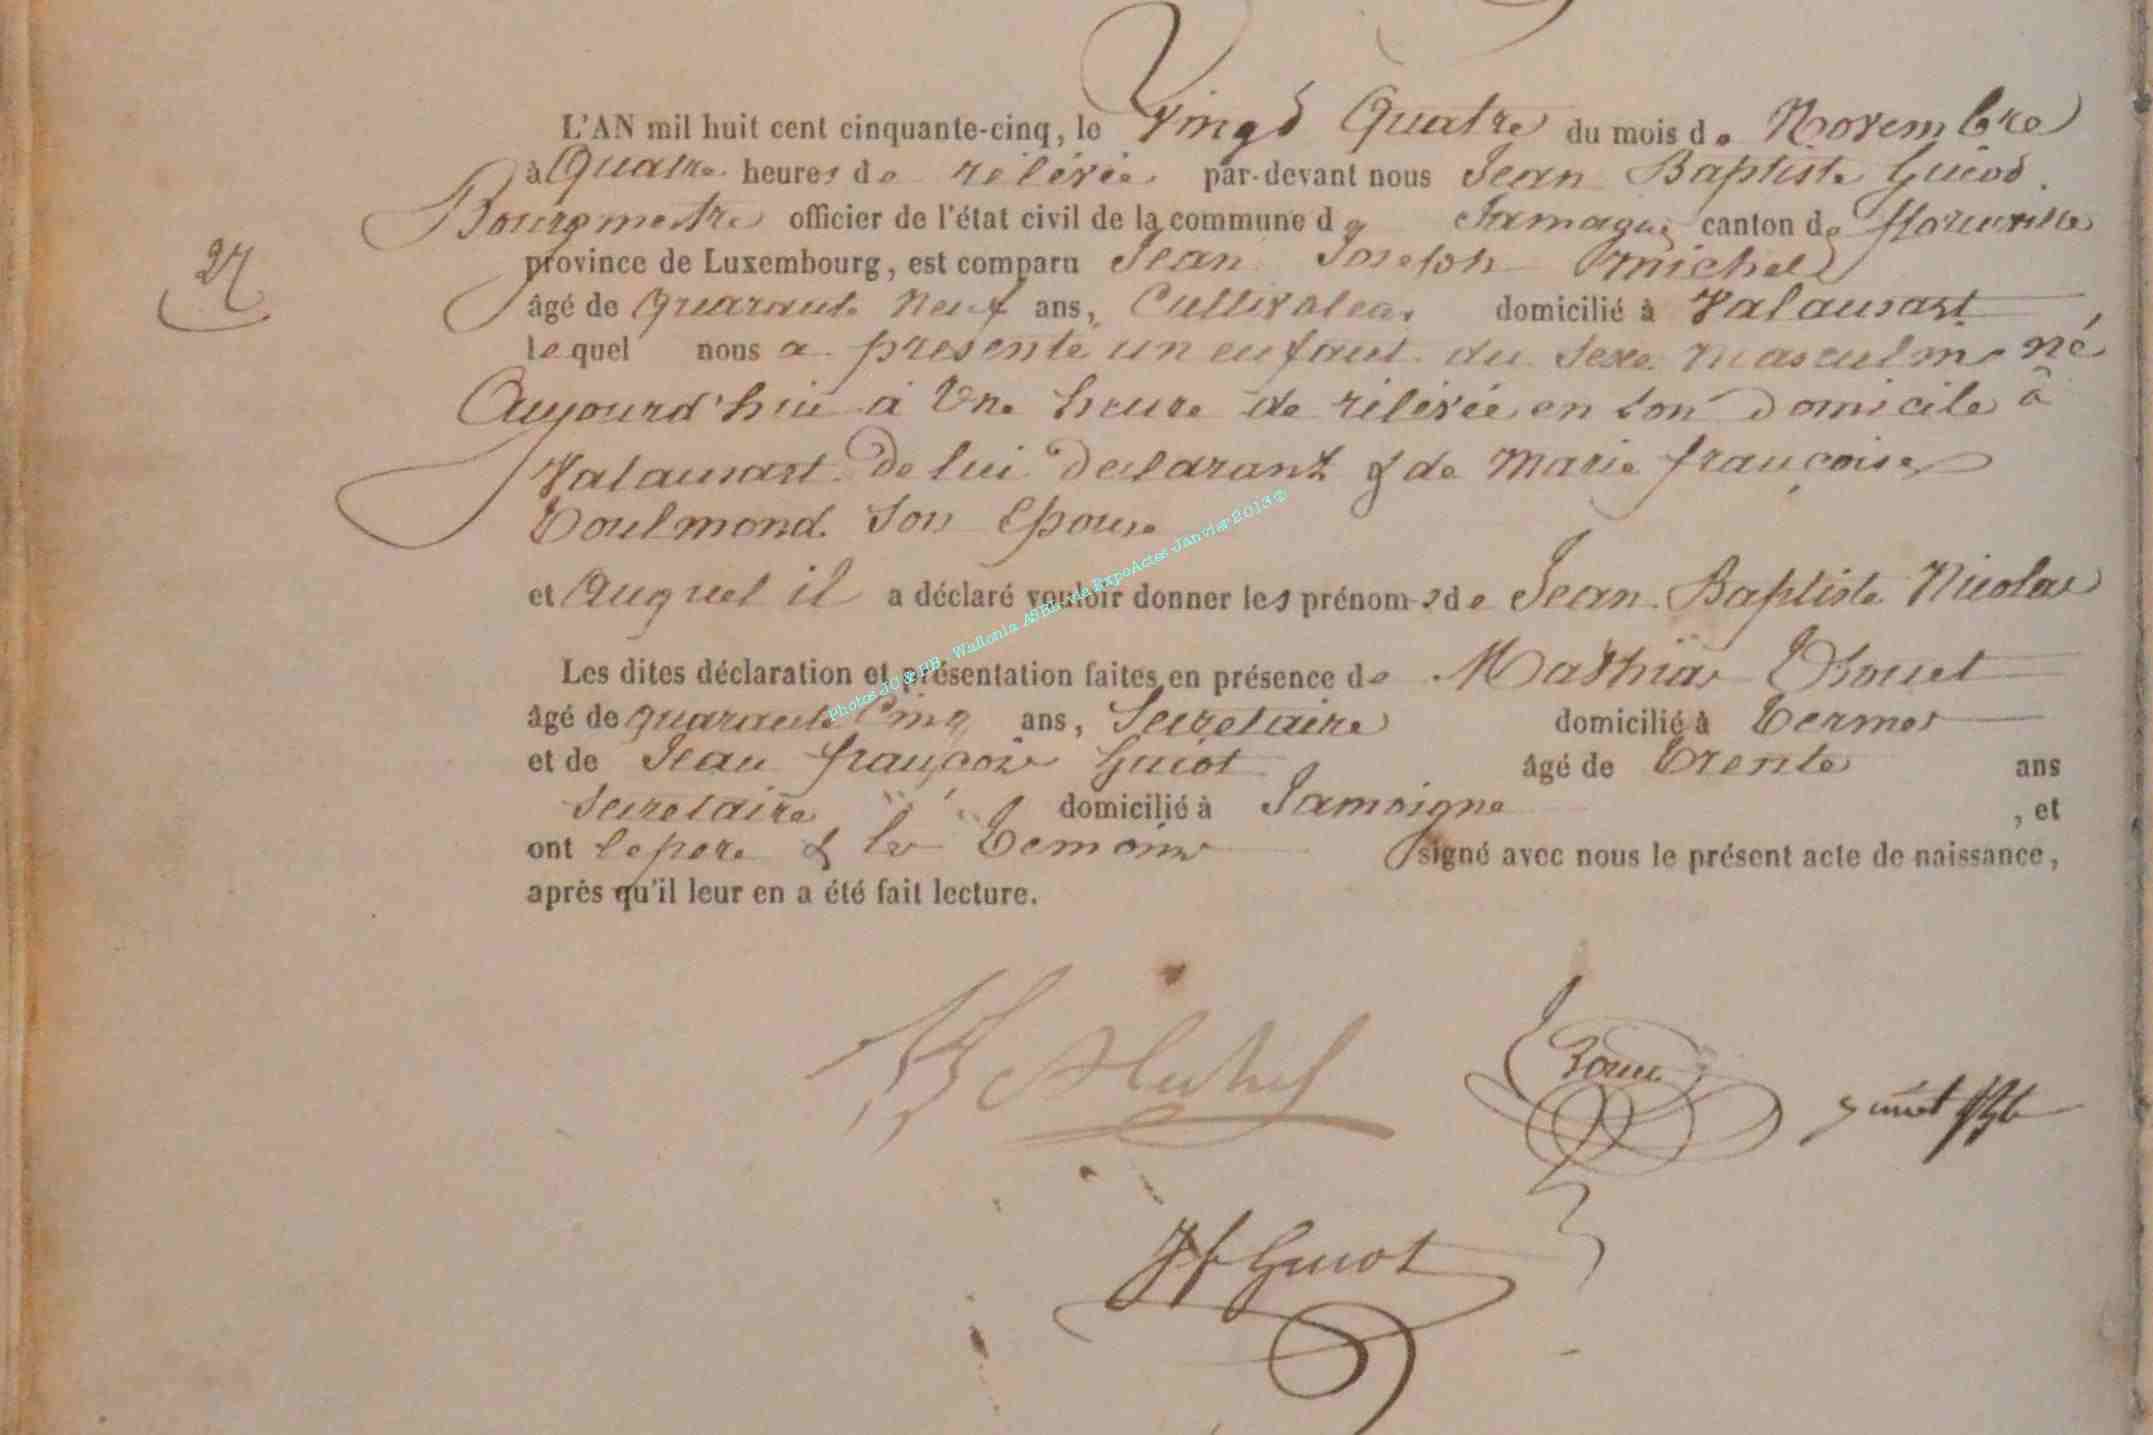 L'AN mil huit cent cinquante-cinq, le Vingt Quatre du mois de Novembre
à Quatre heures de rélévée par-devant nous Jean Baptiste Guiot
Bourgmestre officier de l'état civil de la commune de Jamoigne canton de florenville
province de Luxembourg, est comparu Jean Joseph Michel
27
âgé de Quarante Neuf ans, Cultivateur domicilié à Valansart
lequel nous a présenté un enfant du Sexe Masculin né
Aujourd'hui à Une heure de rélévée en son Domicile à
Valansart De lui Déclarant & de Marie françoise
Toulmond Son Epouse
et Auquel il a déclaré vouloir donner les prénoms de Jean Baptiste Nicolas
Les dites déclaration et présentation faites en présence de Mathias
âgé de quarante Cinq ans, Secretaire domicilié à Termes
et de Jean françois Guiot âgé de Trente ans
Secretaire domicilié à Jamoigne , et
ont le père & les Temoins signé avec nous le présent acte de naissance,
après qu'il leur en a été fait lecture.
Michel
guiot
Jf Guiot
Photos JC & HB - Wallonia ASBL via ExpoActes Janvier 2013 ©